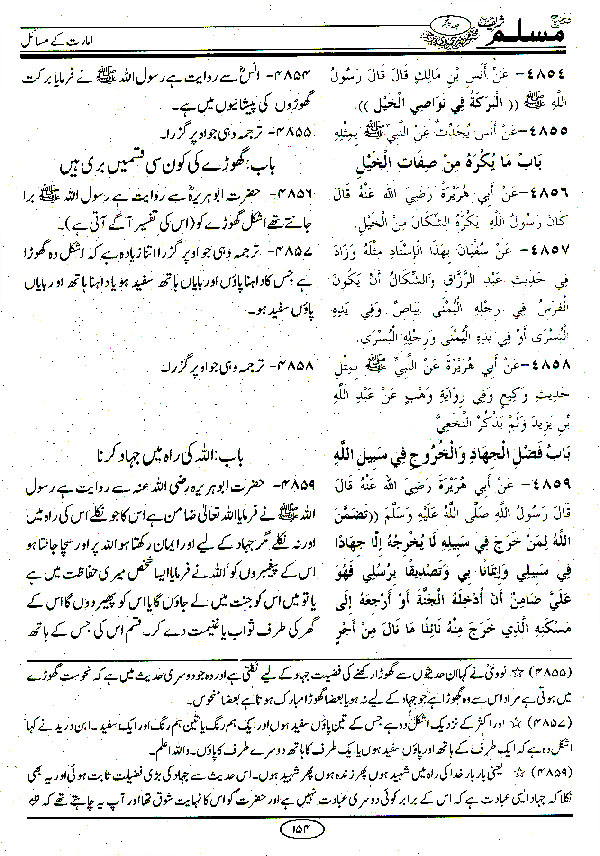 امارت کے مسائل
مسلم
٤٨٥٤- عَنْ أَنَسِ بْنِ مَالِكٍ قَالَ قَالَ رَسُولُ
اللهِ ﷺ (( الْبَرَكَةُ فِي نَوَاصِي الْخَيْلِ )).
٤٨٥٥- عَنْ أَنَسٍ يُحَدِّثُ عَنْ النَّبِيِّ ﷺ بِمِثْلِهِ
بَابُ مَا يُكْرَهُ مِنْ صِفَاتِ الْخَيْلِ
٤٨٥٦- عَنْ أَبِي هُرَيْرَةَ رَضِيَ الله عَنْهُ قَالَ
كَانَ رَسُولُ اللهِ يَكْرَهُ الشِّكَالَ مِنَ الْخَيْلِ.
٤٨٥٧- عَنْ سُفْيَانَ بِهَذَا الْإِسْنَادِ مِثْلَهُ وَزَادَ
فِي حَدِيثِ عَبْدِ الرَّزَّاقِ وَالشِّكَالُ أَنْ يَكُونَ
الْفَرَسُ فِي رِجْلِهِ الْيُمْنَى بَيَاضٌ وَفِي يَدِهِ
الْيُسْرَى أَوْ فِي يَدِهِ الْيُمْنَى وَرِجْلِهِ الْيُسْرَى.
٤٨٥٨- عَنْ أَبِي هُرَيْرَةَ عَنْ النَّبِيِّ ﷺ بِمِثْلِ
حَدِيثِ وَكِيعٍ وَفِي رِوَايَةِ وَهْبٍ عَنْ عَبْدِ اللَّهِ
بْنِ يَزِيدَ وَلَمْ يَذْكُرْ النَّخَعِيَّ
بَابُ فَضْلِ الْجِهَادِ وَالْخُرُوجِ فِي سَبِيلِ اللَّهِ
٤٨٥٩- عَنْ أَبِي هُرَيْرَةَ رَضِيَ الله عَنْهُ قَالَ
قَالَ رَسُولُ اللهِ صَلَّى اللَّهُ عَلَيْهِ وَسَلَّمَ (( تَضَمَّنَ
اللَّهُ لِمَنْ خَرَجَ فِي سَبِيلِهِ لَا يُخْرِجُهُ إِلَّا جِهَادًا
فِي سَبِيلِي وَإِيمَانًا بِي وَتَصْدِيقًا بِرُسُلِي فَهُوَ
عَلَيَّ ضَامِنٌ أَنْ أُدْخِلَهُ الْجَنَّةَ أَوْ أَرْجِعَهُ إِلَى
مَسْكَنِهِ الَّذِي خَرَجَ مِنْهُ نَائِلًا مَا نَالَ مِنْ أَجْرٍ
۴۸۵۴- انسؓ سے روایت ہے رسول اللہ ﷺ نے فرمایا برکت
گھوڑوں کی پیشانیوں میں ہے۔
۴۸۵۵- ترجمہ وہی جو اوپر گزرا۔
باب: گھوڑے کی کون سی قسمیں بری ہیں
۴۸۵۶- حضرت ابوہریرہؓ سے روایت ہے رسول اللہ ﷺ برا
جانتے تھے اشکل گھوڑے کو (اس کی تفسیر آگے آتی ہے)۔
۴۸۵۷- ترجمہ وہی جو اوپر گزرا اتنا زیادہ ہے کہ اشکل وہ گھوڑا
ہے جس کا داہنا پاؤں اور بایاں ہاتھ سفید ہو یا داہنا ہاتھ اور بایاں
پاؤں سفید ہو۔
۴۸۵۸- ترجمہ وہی جو اوپر گزرا۔
باب: اللہ کی راہ میں جہاد کرنا
۴۸۵۹- حضرت ابوہریرہ رضی اللہ عنہ سے روایت ہے رسول
اللہ ﷺ نے فرمایا اللہ تعالیٰ ضامن ہے اس کا جو نکلے اس کی راہ میں
اور نہ نکلے مگر جہاد کے لیے اور ایمان رکھتا ہو اللہ پر اور سچا جانتا ہو
اس کے پیغمبروں کو اللہ نے فرمایا ایسا شخص میری حفاظت میں ہے
یا تو میں اس کو جنت میں لے جاؤں گا یا اس کو پھیر دوں گا اس کے
گھر کی طرف ثواب یا غنیمت دے کر۔ قسم اس کی جس کے ہاتھ
(۴۸۵۵) ☆ نوویؒ نے کہا ان حدیثوں سے گھوڑا رکھنے کی فضیلت جہاد کے لیے نکلتی ہے اور وہ جو دوسری حدیث میں ہے کہ نحوست گھوڑے
میں ہوتی ہے مراد اس سے وہ گھوڑا ہے جو جہاد کے لیے نہ ہو یا بعضا گھوڑا مبارک ہوتا ہے بعضا منحوس۔
(۴۸۵۷) ☆ اور اکثر کے نزدیک اشکل وہ ہے جس کے تین پاؤں سفید ہوں اور ایک ہم رنگ یا تین ہم رنگ اور ایک سفید۔ ابن درید نے کہا
اشکل وہ ہے کہ ایک طرف کے ہاتھ اور پاؤں سفید ہوں یا ایک طرف کا ہاتھ دوسرے طرف کا پاؤں۔ واللہ اعلم۔
(۴۸۵۹) ☆ یعنی بار بار خدا کی راہ میں شہید ہوں پھر زندہ ہوں پھر شہید ہوں۔ اس حدیث سے جہاد کی بڑی فضیلت ثابت ہوئی اور یہ بھی
نکلا کہ جہاد ایسی عبادت ہے کہ اس کے برابر کوئی دوسری عبادت نہیں ہے اور حضرت کو اس کا نہایت شوق تھا اور آپ یہ چاہتے تھے کہ
۱۵۴